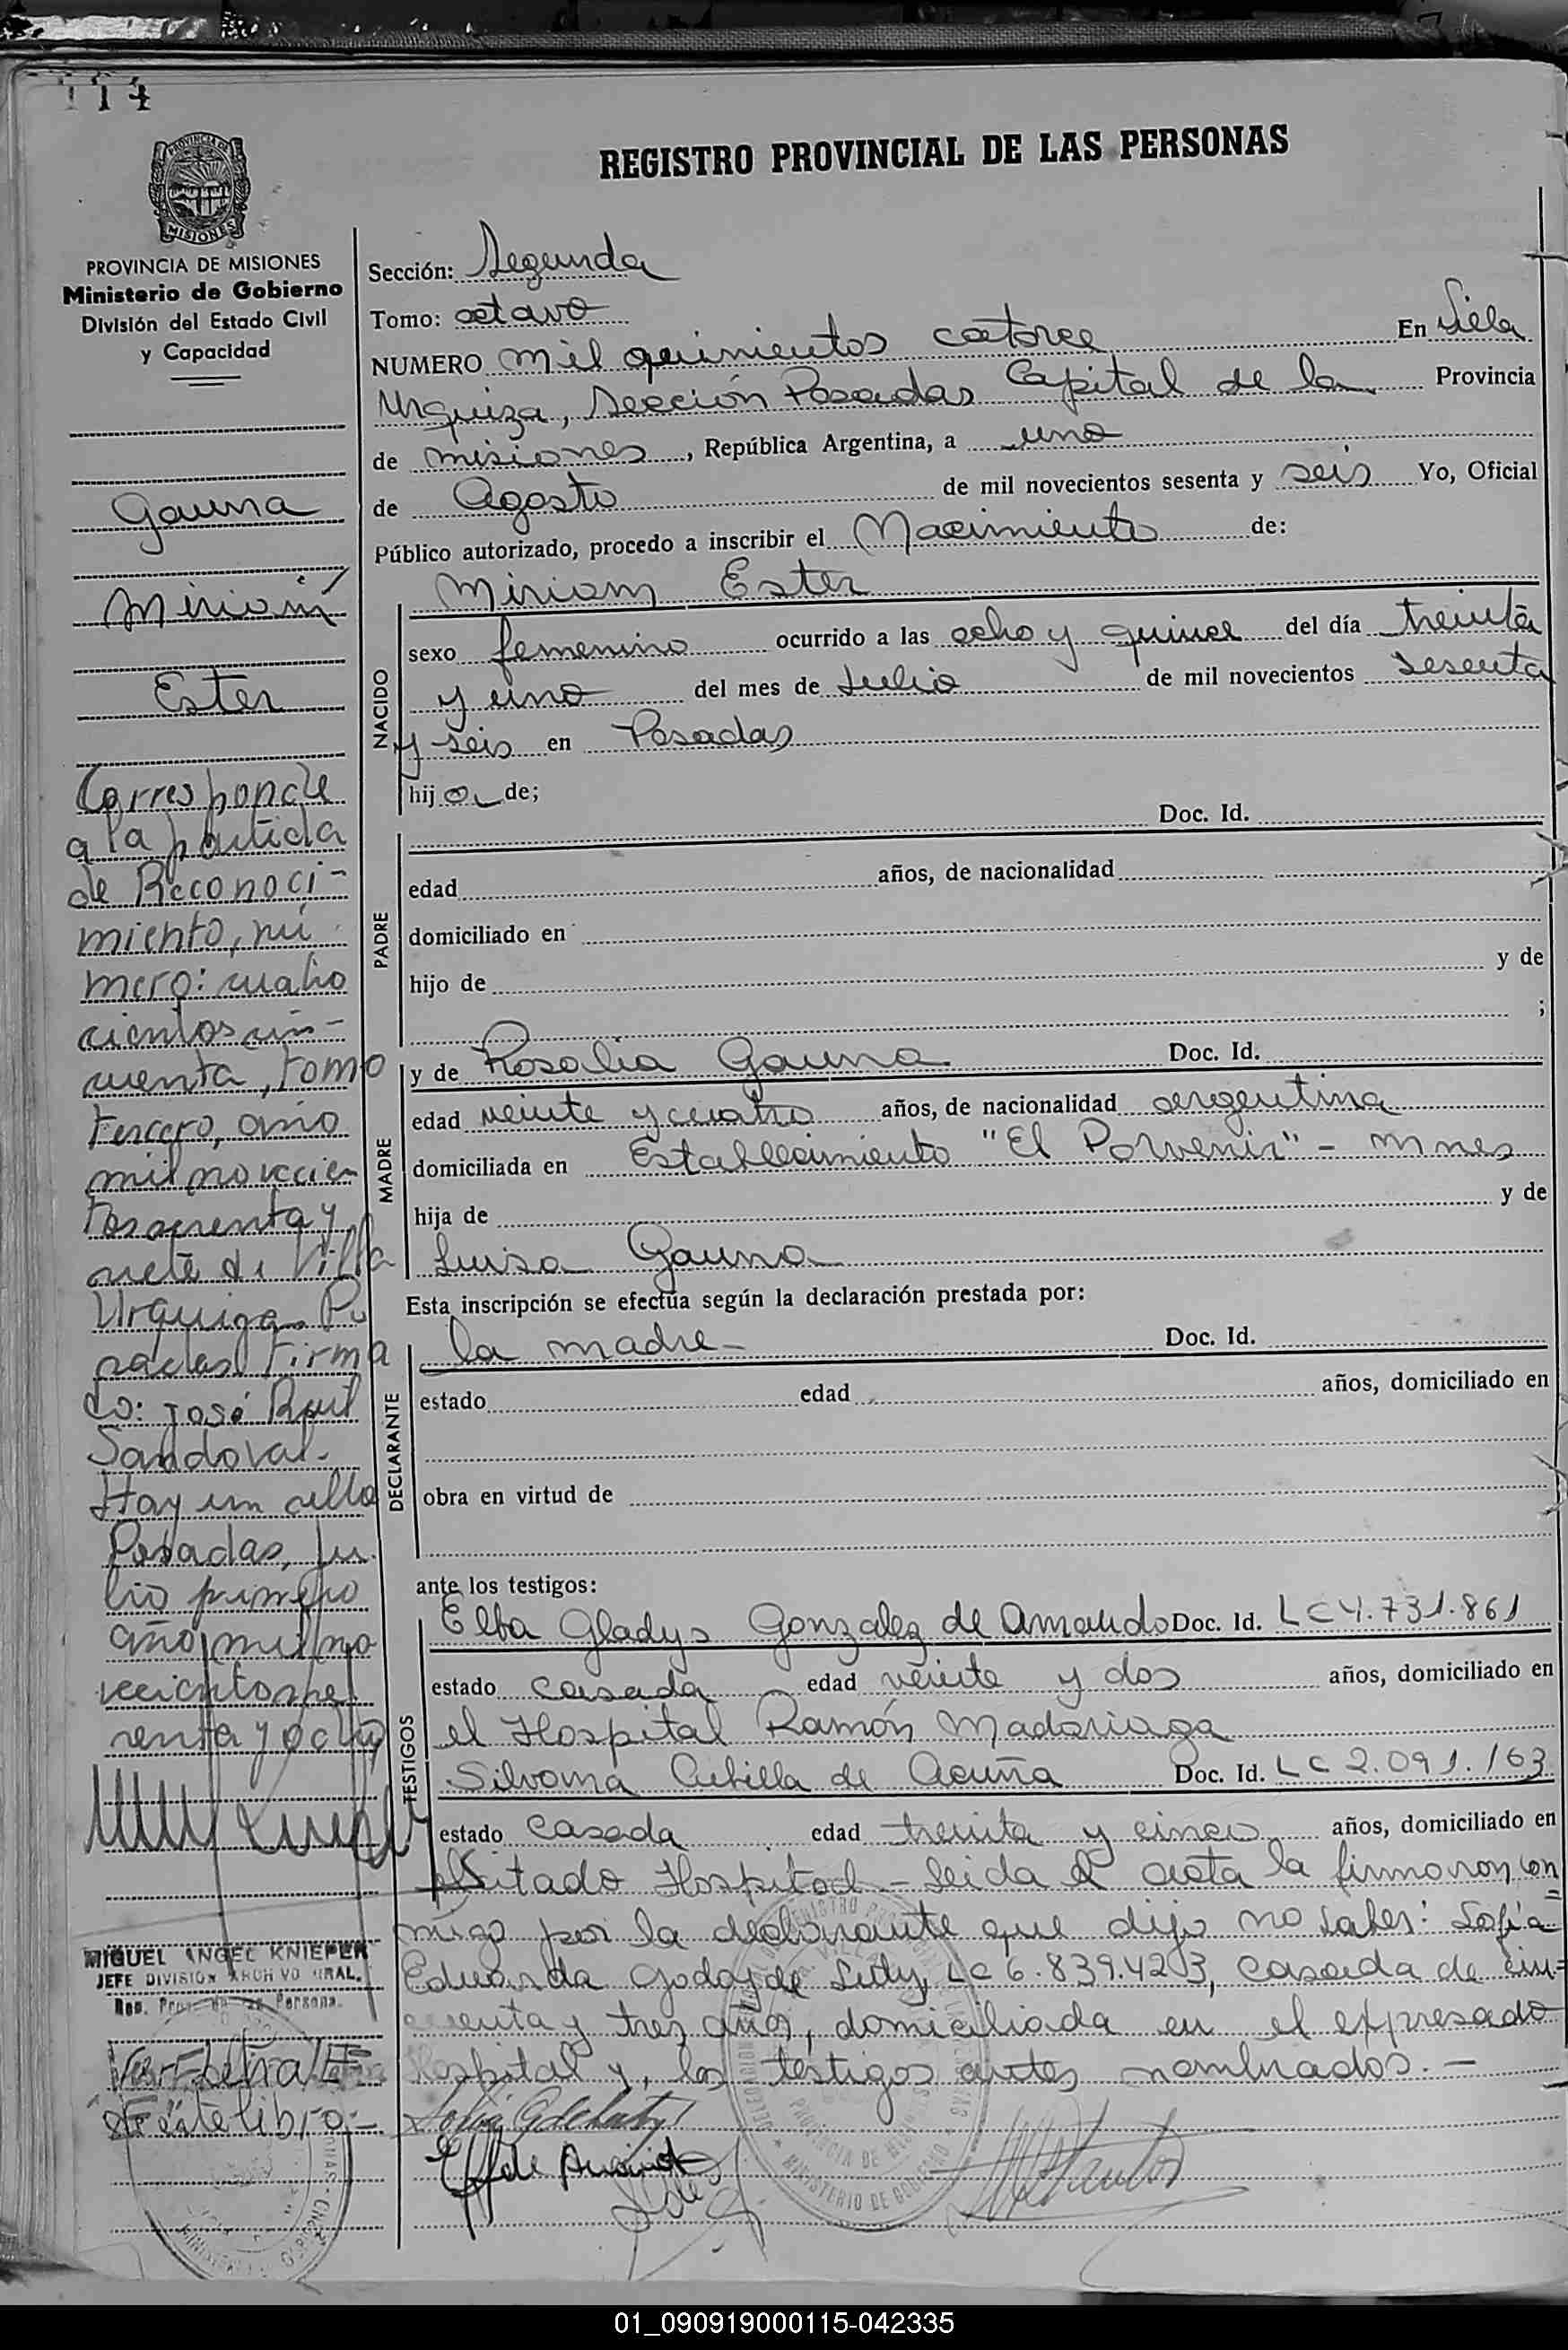 114
REGISTRO PROVINCIAL DE LAS PERSONAS
MISIONES
PROVINCIA DE MISIONES
Ministerio de Gobierno
División del Estado Civil
y Capacidad
Gauna
Miriam
Ester
Corresponde
a la partida
de Reconoci-
miento, nú
mero: cuatro
cientos cin-
cuenta, tomo
tercero, año
mil novecien
tos
siete de Villa
Urquiza. Po
sadas. Firma
do: José Raul
Sandoval.
Hay un sello
Posadas, Ju
lio primero
año mil no
vecientos
renta y ocho
MIGUEL ANGEL KNIEPER
JEFE DIVISION ARCHIVO GRAL.
Reg. Prov. de las Persona.
de este libro.-
Sección: Segunda
Tomo: octavo
NUMERO mil quinientos catorce En
Urquiza, Sección Posadas Capital de la Provincia
de misiones, República Argentina, a uno
de Agosto de mil novecientos sesenta y seis Yo, Oficial
Público autorizado, procedo a inscribir el Nacimiento de:
NACIDO
Miriam Ester
sexo femenino ocurrido a las ocho y quince del día treinta
y uno del mes de Julio de mil novecientos sesenta
y seis en Posadas
hija de;
PADRE
Doc. Id.
edad años, de nacionalidad
domiciliado en
hijo de y de
;
MADRE
y de Rosalia Gauna Doc. Id.
edad veinte y cuatro años, de nacionalidad argentina
domiciliada en Establecimiento "El Porvenir" - Mnes
hija de y de
Luisa Gauna
Esta inscripción se efectúa según la declaración prestada por:
DECLARANTE
la madre - Doc. Id.
estado edad años, domiciliado en
obra en virtud de
ante los testigos:
TESTIGOS
Elba Gladys Gonzalez de Amarido Doc. Id. LC 4.731.861
estado casada edad veinte y dos años, domiciliado en
el Hospital Ramón Madariaga
Silvana Cubilla de Acuña Doc. Id. LC 2.091.163
estado casada edad treinta y cinco años, domiciliado en
citado Hospital - Leida el acta la firmaron con
migo por la declarante que dijo no saber: Sofia
Eduarda Godoy de LC 6.839.423, casada de cin=
cuenta y tres años, domiciliada en el expresado
Hospital y, los testigos antes nombrados. -
01_090919000115-042335